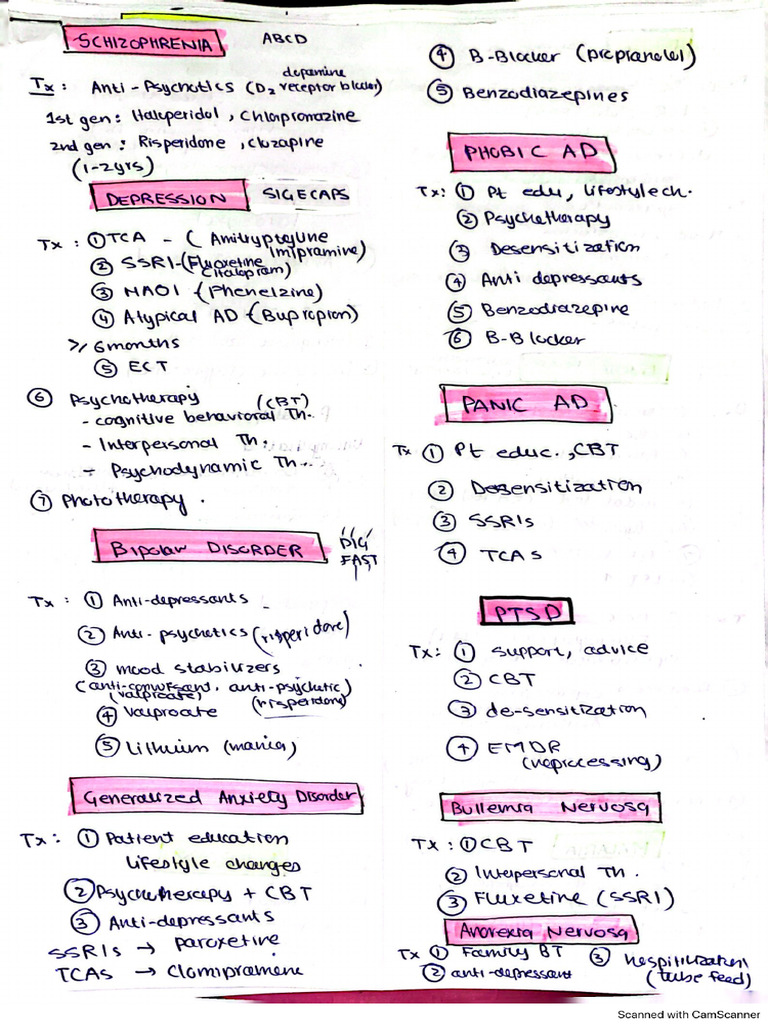 SCHIZOPHRENIA ABCD
Tx : Anti-Psychotics (D2 dopamine receptor blocker)
1st gen : Haloperidol, Chlorpromazine
2nd gen : Risperidone, clozapine
(1-2yrs)
DEPRESSION SIGECAPS
Tx : ① TCA - ( Amitryptyline
Imipramine)
② SSRI-(Fluoxetine
Citalopram)
③ MAOI -(Phenelzine)
④ Atypical AD -(Bupropion)
≥ 6 months
⑤ ECT
⑥ Psychotherapy (CBT)
- cognitive behavioral Th..
- Interpersonal Th.
- Psychodynamic Th..
⑦ Phototherapy .
BIPOLAR DISORDER DIG
FAST
Tx : ① Anti-depressants
② Anti-psychotics (risperidone)
③ mood stabilizers
(anti-convulsant, anti-psychotic)
(valproate) (risperidone)
④ valproate
⑤ Lithium (mania)
Generalized Anxiety Disorder
Tx : ① Patient education
lifestyle changes
② Psychotherapy + CBT
③ Anti-depressants
SSRIs → Paroxetine
TCAs → Clomipramine
④ B-Blocker (propranolol)
⑤ Benzodiazepines
PHOBIC AD
Tx: ① Pt edu, lifestyle ch.
② Psychotherapy
③ Desensitization
④ Anti depressants
⑤ Benzodiazepine
⑥ B-Blocker
PANIC AD
Tx ① Pt educ., CBT
② Desensitization
③ SSRIs
④ TCAs
PTSD
Tx: ① support, advice
② CBT
③ de-sensitization
④ EMDR
(reprocessing)
Bullemia Nervosa
Tx : ① CBT
② Interpersonal Th.
③ Fluxetine (SSRI)
Anorexia Nervosa
Tx ① Family BT ③ hospitilization
② anti-depressant (tube feed)
Scanned with CamScanner